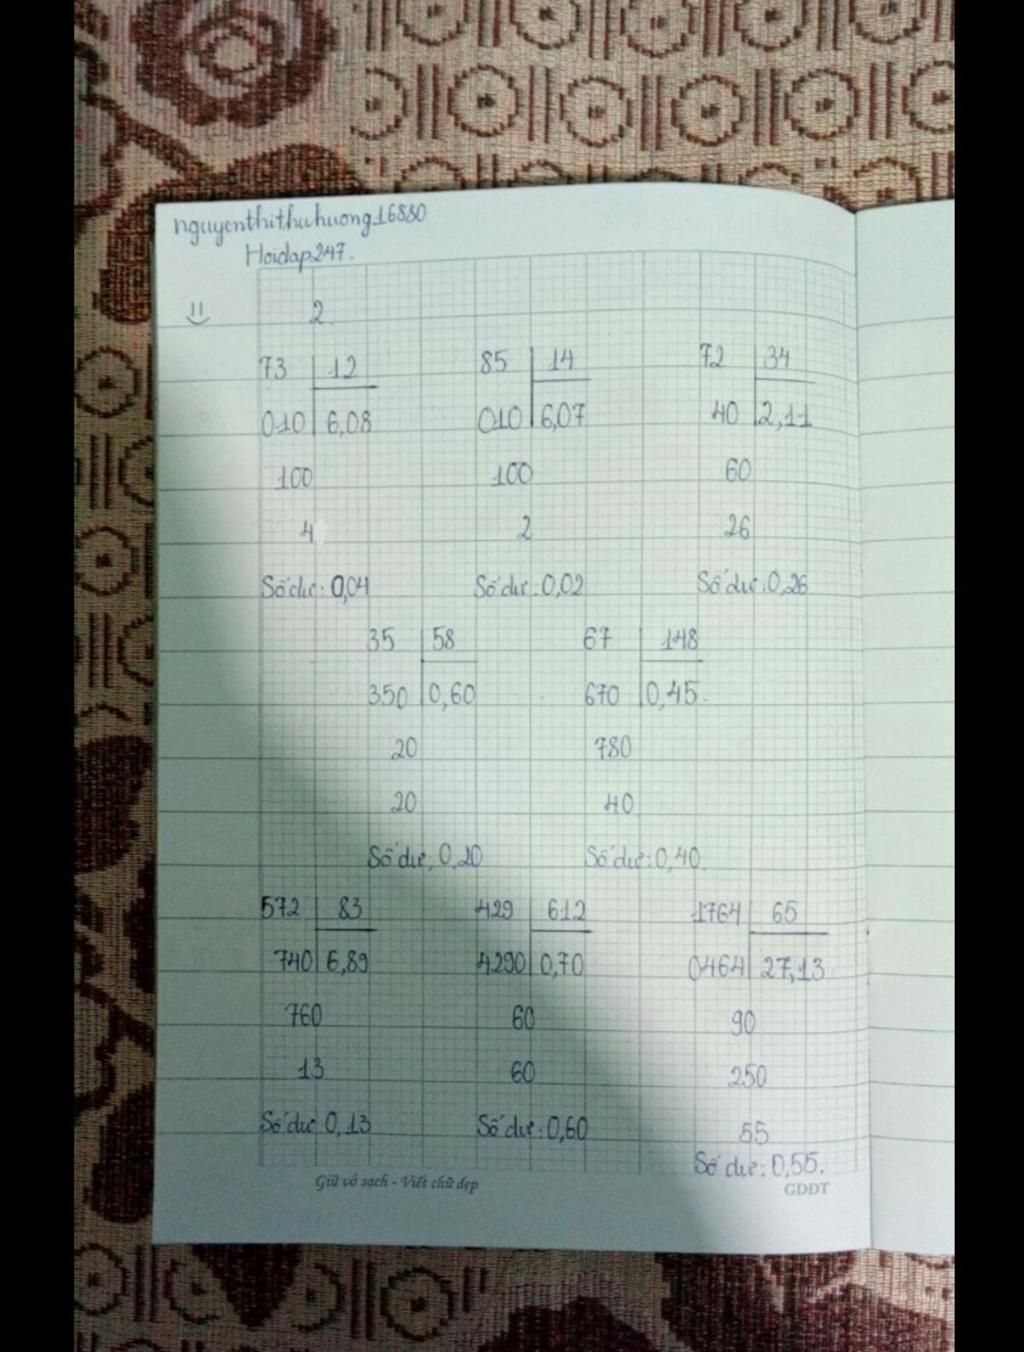 nguyenthithuhuong16880
Hoidap247.
2.
73 12 85 14 72 34
010 6,08 010 6,07 40 2,11
100 100 60
4 2 26
Số dư: 0,04 Số dư: 0,02 Số dư: 0,26
35 58 67 148
350 0,60 670 0,45.
20 780
20 40
Số dư, 0,20 Số dư: 0,40.
572 83 429 612 1764 65
740 6,89 4290 0,70 0464 27,13
760 60 90
13 60 250
Số dư 0,13 Số dư: 0,60 55
Số dư: 0,55.
Giữ vở sạch - Viết chữ đẹp GDĐT